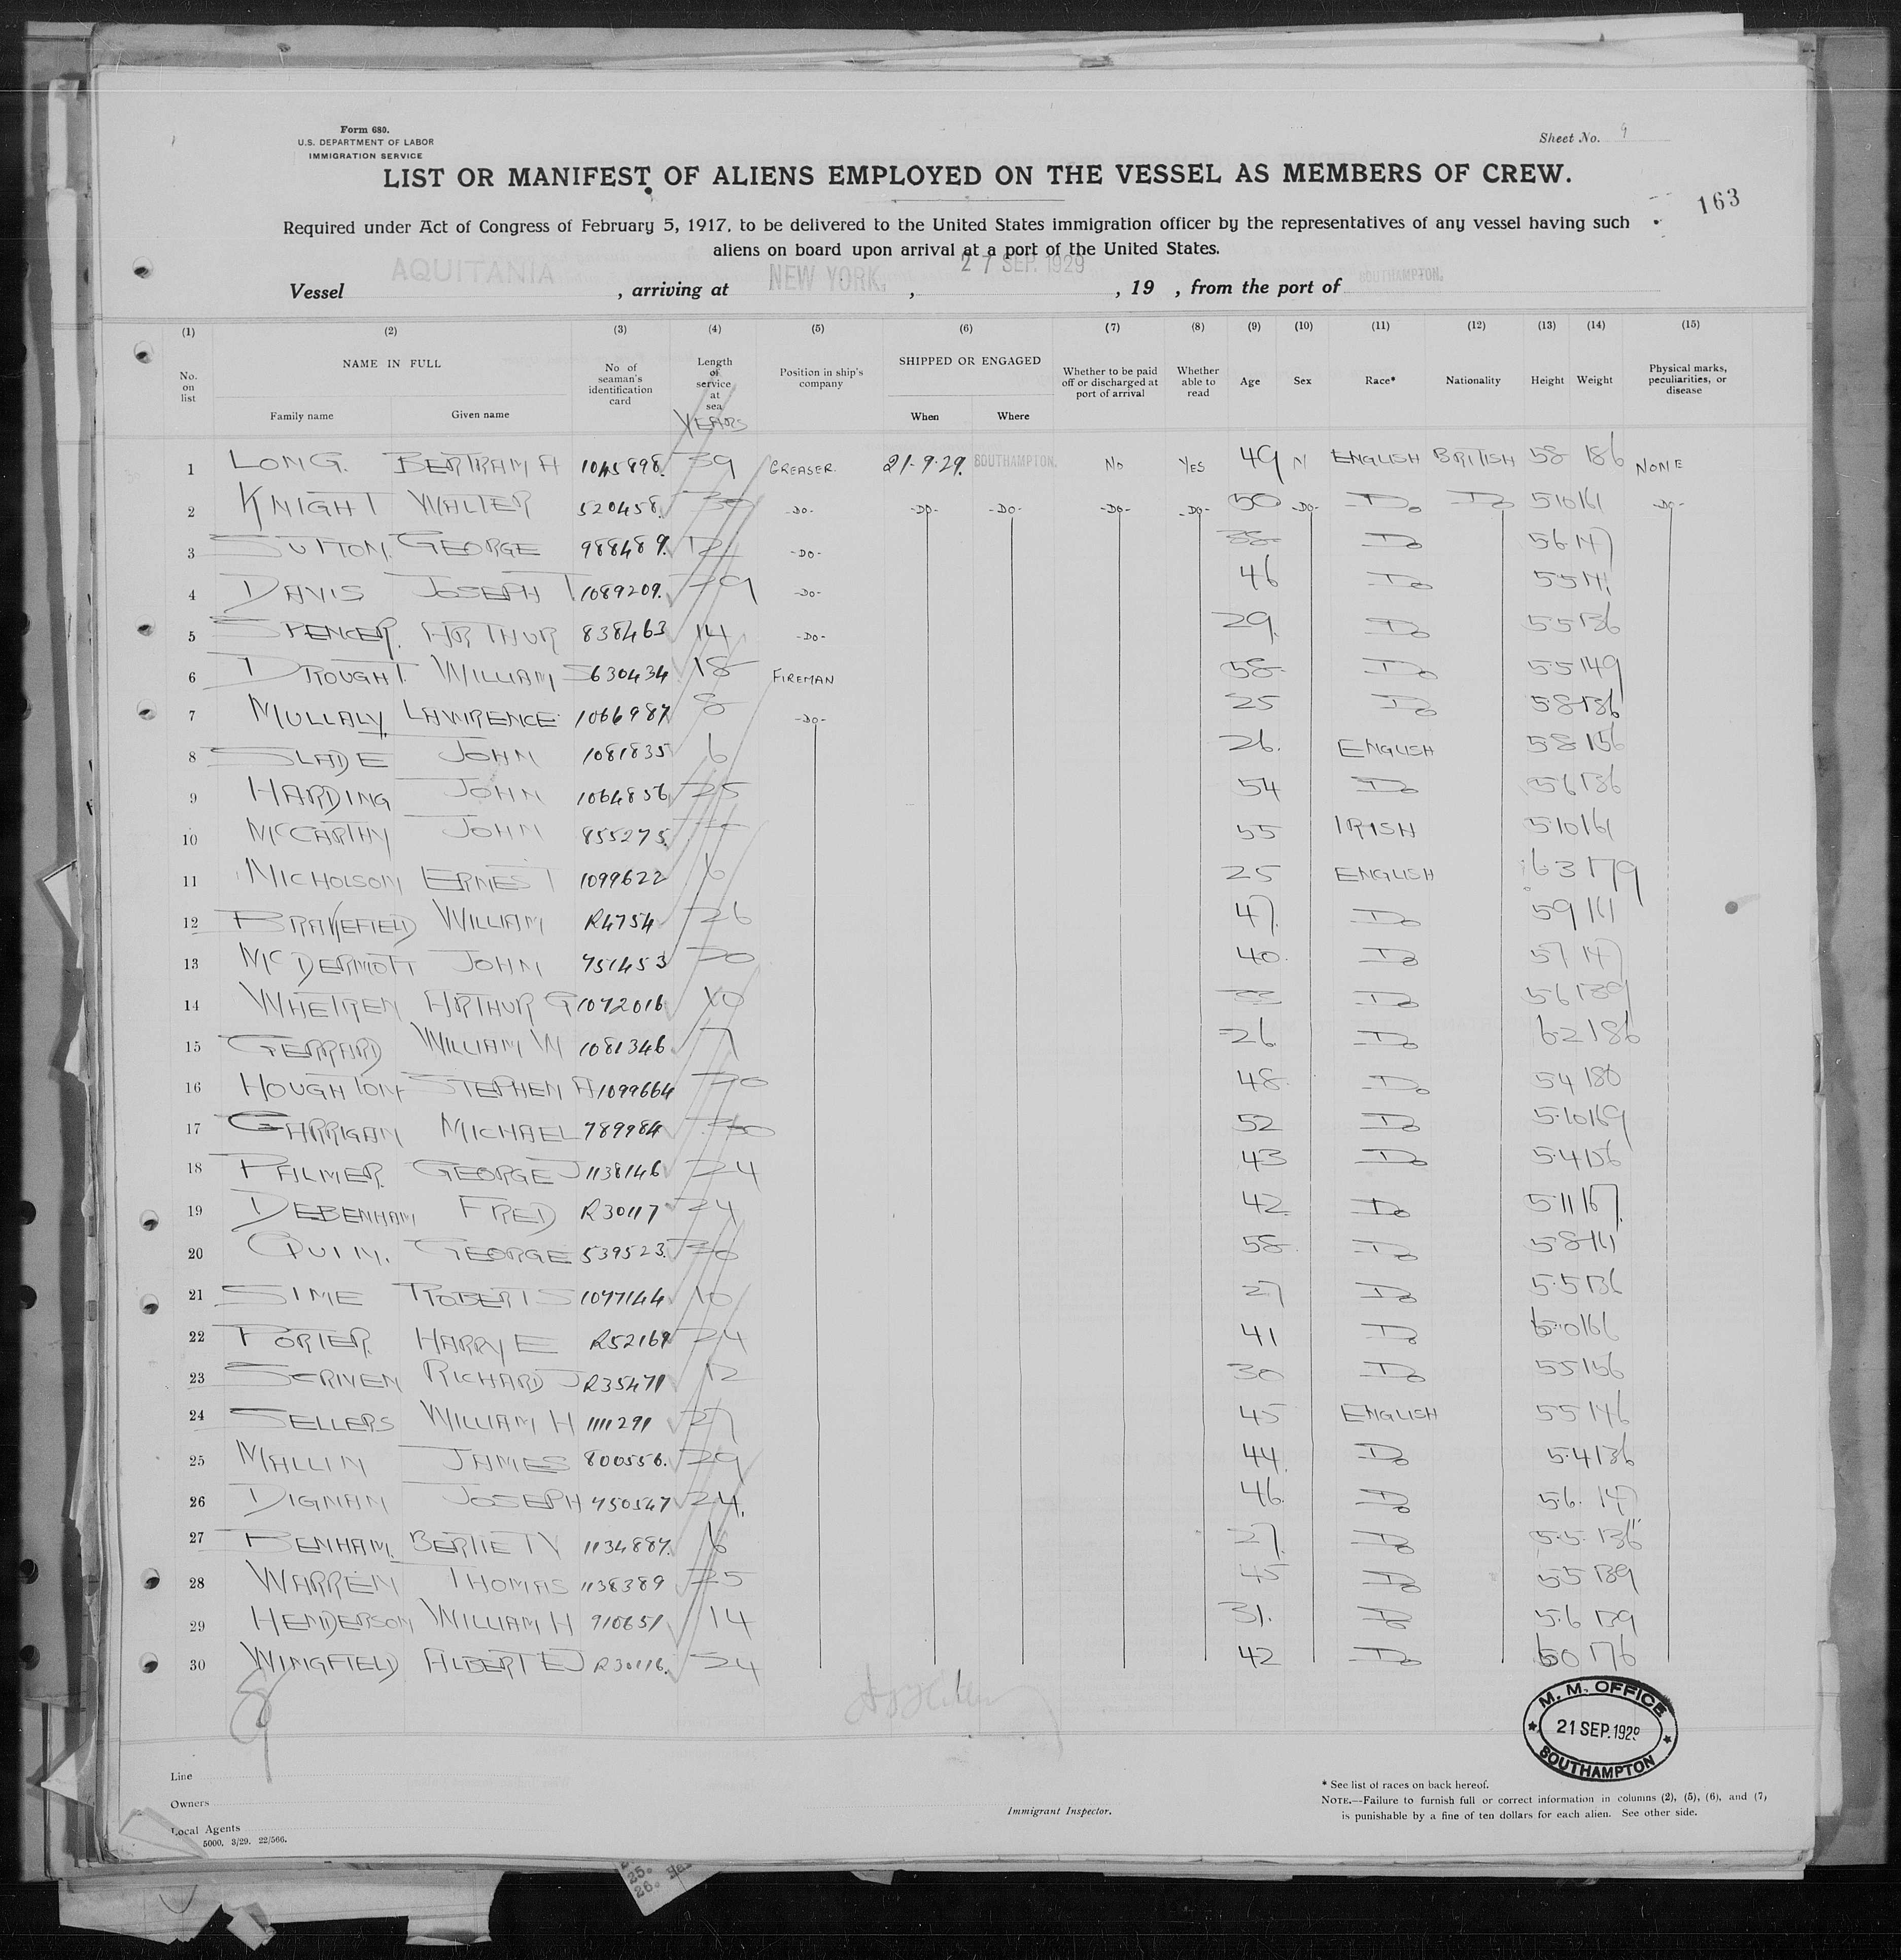 Form 680.
U.S. DEPARTMENT OF LABOR
IMMIGRATION SERVICE
Sheet No. 9
LIST OR MANIFEST OF ALIENS EMPLOYED ON THE VESSEL AS MEMBERS OF CREW.
163
Required under Act of Congress of February 5, 1917, to be delivered to the United States immigration officer by the representatives of any vessel having such
aliens on board upon arrival at a port of the United States.
Vessel AQUITANIA, arriving at NEW YORK, 27 SEP. 1929, 19 , from the port of SOUTHAMPTON.
(1) (2) (3) (4) (5) (6) (7) (8) (9) (10) (11) (12) (13) (14) (15)
No. on list NAME IN FULL Family name Given name No of seaman's identification card Length of service at sea YEARS Position in ship's company SHIPPED OR ENGAGED When Where Whether to be paid off or discharged at port of arrival Whether able to read Age Sex Race* Nationality Height Weight Physical marks, peculiarities, or disease
1 LONG. BERTRAM A 1045898. 39 GREASER. 21-9-29. SOUTHAMPTON. NO YES 49 M ENGLISH BRITISH 58 186 NONE
2 KNIGHT WALTER 520458. 30 -DO- -DO- -DO- -DO- -DO- 50 -DO- Do Do 510 161 -DO-
3 SUTTON. GEORGE 988489. 12 -DO- 38 Do 56 147
4 DAVIS JOSEPH T. 1089209. 29 -DO- 46 Do 55 141
5 SPENCER. ARTHUR 838463 14 -DO- 29. Do 55 136
6 DROUGHT. WILLIAM S 630434 18 FIREMAN 58 Do 55 149
7 MULLALY, LAWRENCE 1066987 8 -DO- 25 Do 58 136
8 SLADE JOHN 1081835 6 26. ENGLISH 58 156
9 HARDING JOHN 1064856 25 54 Do 56 136
10 McCARTHY JOHN 855275. 55 IRISH 510 161
11 NICHOLSON ERNEST 1099622 6 25 ENGLISH 63 179
12 BRAKEFIELD WILLIAM R4754 26 47. Do 59 161
13 McDERMOTT JOHN 751453 20 40. Do 57 147
14 WHETREN ARTHUR G 1072016 10 33 Do 56 139
15 GERRARD WILLIAM W 1081346 7 26 Do 62 186
16 HOUGHTON STEPHEN A 1099664 30 48 Do 54 180
17 GARRIGAN MICHAEL 789984 30 52 Do 5·10 169
18 PALMER. GEORGE J 1138146 24 43 Do 5·4 156
19 DEBENHAM FRED R30117 24 42 Do 511 167.
20 QUIN. GEORGE 539523. 30 58 Do 58 161
21 SIME ROBERT S 1077144 10 27 Do 5·5 136
22 PORTER. HARRY E R52169 24 41 Do 6·0 166
23 SCRIVEN RICHARD J R35471 12 30 Do 55 156
24 SELLERS WILLIAM H 1111291 27 45 ENGLISH 55 146
25 MALLIN JAMES 800556. 29 44 Do 5·4 136
26 DIGNAM JOSEPH 750547 24. 46 Do 5·6. 147
27 BENHAM. BERTIE 1134887. 6 27. Do 5·5· 136
28 WARREN THOMAS 1138389 25 45 Do 5·5 139
29 HENDERSON WILLIAM H 910651 14 31. Do 5·6 139
30 WINGFIELD ALBERT E J R30116. 24 42 Do 60 176
M. M. OFFICE
21 SEP. 1929
SOUTHAMPTON
Line
Owners
Local Agents
5000. 3/29. 22/566.
Immigrant Inspector.
* See list of races on back hereof.
NOTE.—Failure to furnish full or correct information in columns (2), (5), (6), and (7)
is punishable by a fine of ten dollars for each alien. See other side.
25.
26.